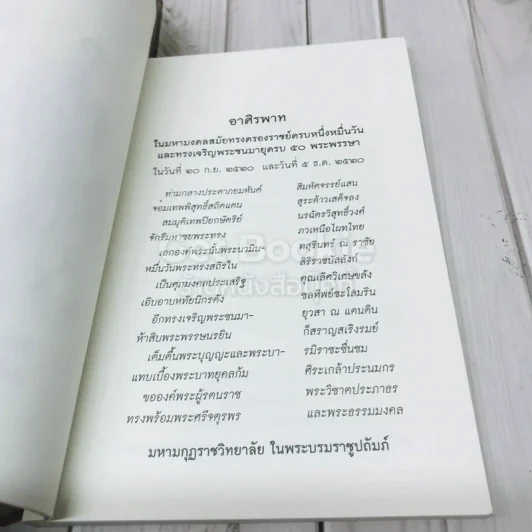 อาศิรพาท
ในมหามงคลสมัยทรงครองราชย์ครบหนึ่งหมื่นวัน
และทรงเจริญพระชนมายุครบ ๕๐ พระพรรษา
ในวันที่ ๒๐ ก.ย. ๒๕๒๐ และวันที่ ๕ ธ.ค. ๒๕๒๐
ท่ามกลางประคาภยมหันต์ สิมหัศจรรย์แสน
จอมเทพพิสุทธิ์สถิตแคน สุระด้าวเสด็จลง
สมมุติเทพปิยกษัตริย์ นรฉัตรวิสุทธิ์วงศ์
จักรีมหาชยพระทรง ภวเหนือไผทไทย
เอกองค์พระนั้นพระนวมิน– ทสุรินทร์ ณ ราชัย
หมื่นวันพระทรงสถิรใน สิริราชบัลลังก์
เป็นศุภมงคลประเสริฐ คุณเลิศวิเศษขลัง
เอิบอาบหทัยนิกรคัง ชลทิพย์ชะโลมริน
อีกทรงเจริญพระชนมา– ยุวสา ณ แดนดิน
ห้าสิบพระพรรษนรยิน ก็สราญสเริงรมย์
เต็มตื้นพระบุญญะและพระบา– รมิราชะชื่นชม
แทบเบื้องพระบาทยุคลก้ม ศิระเกล้าประนมกร
ขอองค์พระผู้รตนราช พระวิชาตประภาธร
ทรงพร้อมพระศรีจตุรพร และพระธรรมมงคล
มหามกุฏราชวิทยาลัย ในพระบรมราชูปถัมภ์